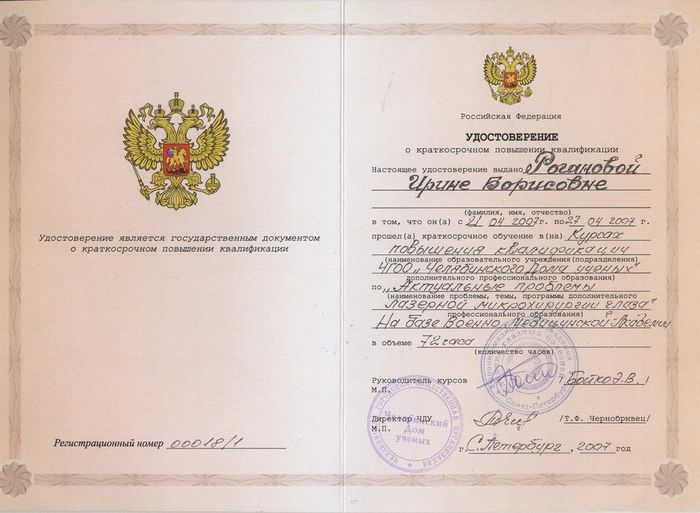 Удостоверение является государственным документом
о краткосрочном повышении квалификации
Регистрационный номер 00018/1
Российская Федерация
УДОСТОВЕРЕНИЕ
о краткосрочном повышении квалификации
Настоящее удостоверение выдано Рогановой
Ирине Борисовне
(фамилия, имя, отчество)
в том, что он(а) с 21 04 2007г. по 27 04 2007 г.
прошел(а) краткосрочное обучение в(на) Курсах
повышения квалификации
(наименование образовательного учреждения(подразделения)
ЧГОО "Челябинского Дома ученых"
дополнительного профессионального образования)
по "Актуальные проблемы
(наименование проблемы, темы, программы дополнительного
лазерной микрохирургии глаза"
профессионального образования)
На базе Военно-Медицинской Академии
в объеме 72 часа
(количество часов)
Руководитель курсов / Бойко Э.В. /
М.П.
Челябинский
Дом
ученых
Санкт-Петербург
Директор ЧДУ /Т.Ф. Чернобривец/
М.П.
г. С. Петербург, 2007 год